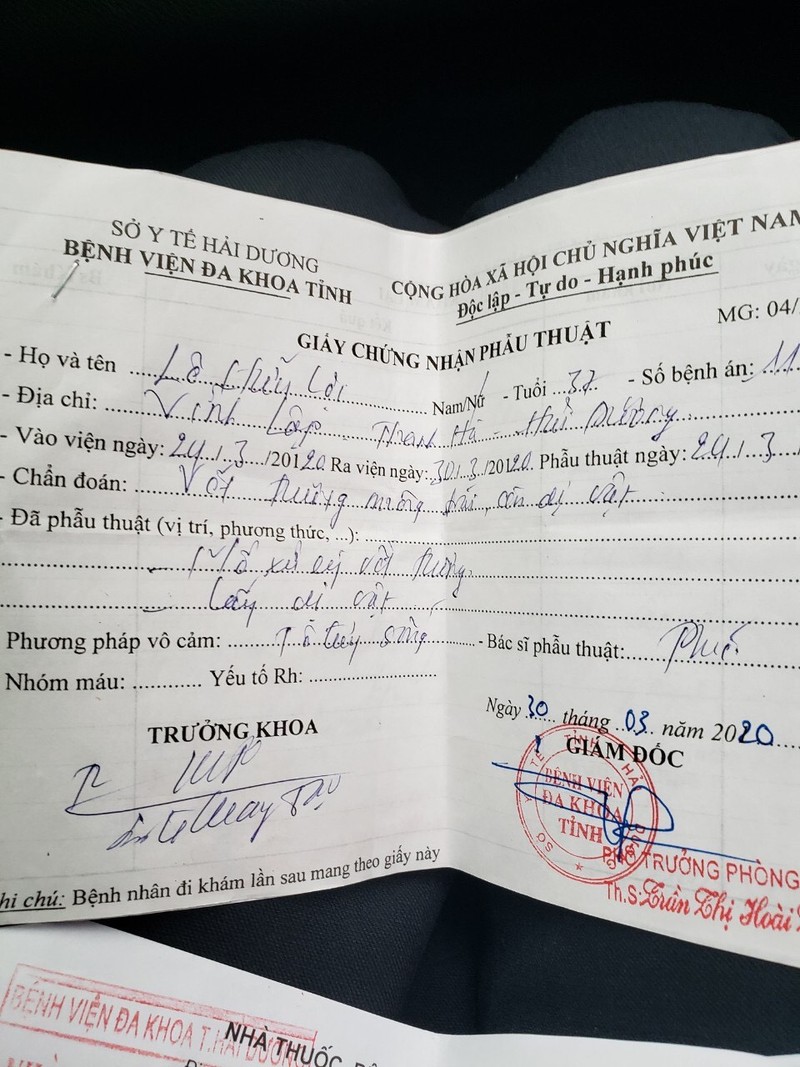 SỞ Y TẾ HẢI DƯƠNG
BỆNH VIỆN ĐA KHOA TỈNH
CỘNG HÒA XÃ HỘI CHỦ NGHĨA VIỆT NAM
Độc lập - Tự do - Hạnh phúc
MG: 04/
GIẤY CHỨNG NHẬN PHẪU THUẬT
- Họ và tên Lê Hữu Lời Nam/Nữ - Tuổi 37 - Số bệnh án: 11
- Địa chỉ: Vĩnh Lập Thanh Hà - Hải Dương
- Vào viện ngày: 24/3/20120 Ra viện ngày: 30/3/20120. Phẫu thuật ngày: 24/3
- Chẩn đoán: Vết thương mông trái, còn dị vật
- Đã phẫu thuật (vị trí, phương thức,...):
- Mổ xử lý vết thương
- Lấy dị vật
Phương pháp vô cảm: Tê tủy sống - Bác sĩ phẫu thuật:
Nhóm máu: Yếu tố Rh:
Ngày 30 tháng 03 năm 2020
TRƯỞNG KHOA
GIÁM ĐỐC
BỆNH VIỆN
ĐA KHOA
TỈNH
PHÓ TRƯỞNG PHÒNG
Th.S: Trần Thị Hoài
hi chú: Bệnh nhân đi khám lần sau mang theo giấy này
BỆNH VIỆN ĐA KHOA T.HẢI DƯƠNG
NHÀ THUỐC